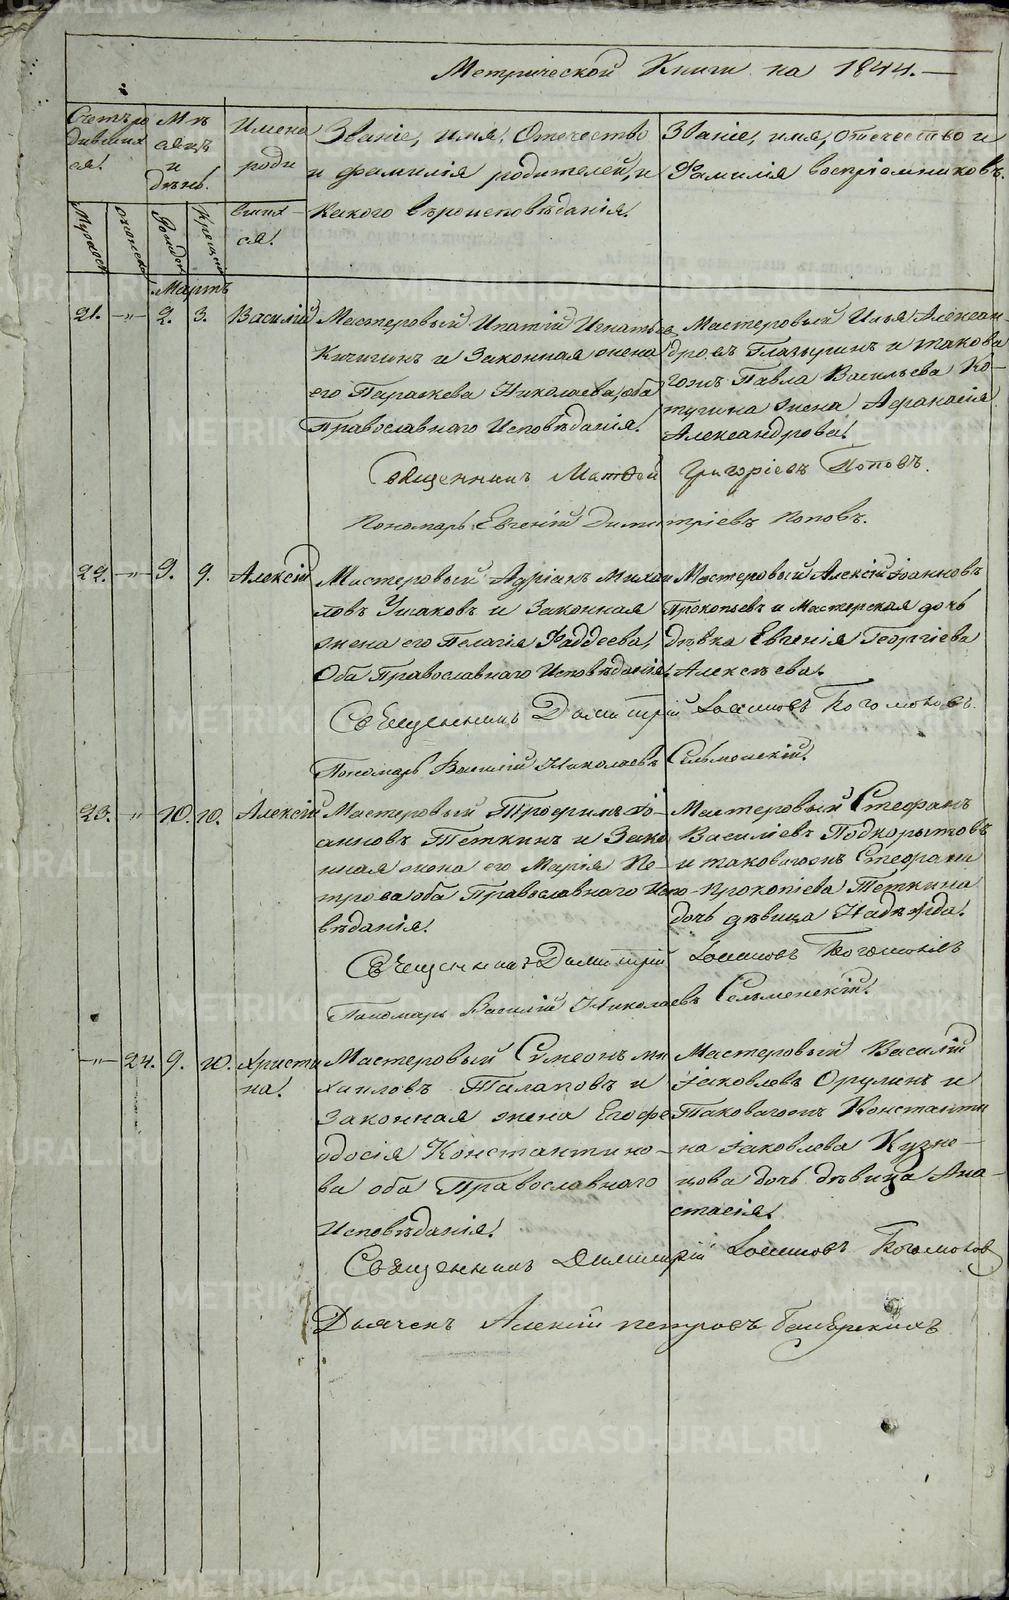 Метрической Книги на 1844.
Счетъ ро
дивших
ся.
Мѣ
сяцъ
и
день.
Имена
роди
вших
ся.
Званіе, имя, Отечество
и фамилія родителей, и
какого вѣроисповѣданія.
Званіе, имя, отечество и
Фамилія воспріемниковъ.
Мартъ
21. 2. 3. Василій
Мастеровый Ипатій Игнатьевъ
Кичигинъ и Законная жена
его Параскева Николаева, оба
Православнаго Исповѣданія.
Мастеровый Илья Алексан
дровъ Глазыринъ и такова
гожъ Павла Васильева Ко-
тугина жена Афанасія
Александрова.
Священникъ Матѳей Григоріевъ Поповъ.
Пономарь Евгеній Димитріевъ Поповъ.
22. 9. 9. Алексій
Мастеровый Адріанъ Михаи
ловъ Ушаковъ и Законная
жена его Пелагія Фаддеева,
Оба Православнаго Исповѣданія.
Мастеровый Алексій Іоанновъ
Прокопьевъ и Мастерская дочь
дѣвка Евгенія Георгіева
Алексѣева.
Священникъ Димитрій Іоанновъ Богомоловъ.
Пономарь Василій Николаевъ Сельменскій.
23. 10. 10. Алексій
Мастеровый Трофимъ Іо-
анновъ Теткинъ и Зако
нная жена его Марія Пе-
трова оба Православнаго Испо-
вѣданія.
Мастеровый Стефанъ
Василіевъ Подкорытовъ
и таковагожъ Стефана
Прокопіева Теткина
дочь дѣвица Надежда.
Священникъ Димитрій Іоанновъ Богомоловъ
Пономарь Василій Николаевъ Сельменскій.
24. 9. 10. Христи
на.
Мастеровый Симеонъ Ми
хаиловъ Талаповъ и
Законная жена Его Фе
одосія Константино-
ва оба Православнаго
Исповѣданія.
Мастеровый Василій
Іаковлевъ Орулинъ и
Таковагожъ Константи
на Іаковлева Кузне-
цова дочь дѣвица Ана-
стасія.
Священникъ Димитрій Іоанновъ Богомолов
Дьячекъ Алексій Петровъ